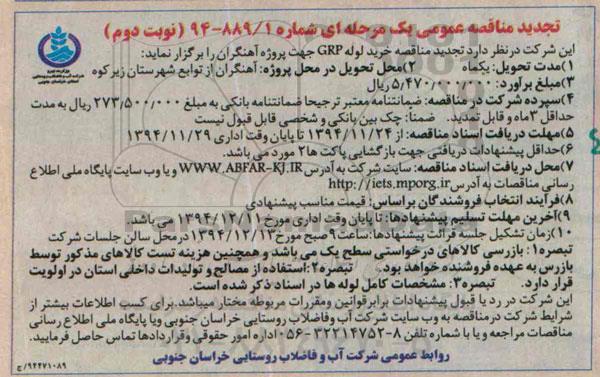 تجدید مناقصه عمومی یک مرحله ای شماره ۹۴-۸۸۹/۱ (نوبت دوم)
این شرکت در نظر دارد تجدید مناقصه خرید لوله GRP جهت پروژه آهنگران را برگزار نماید:
۱) مدت تحویل: یکماه ۲) محل تحویل در محل پروژه: آهنگران از توابع شهرستان زیر کوه
۳) مبلغ برآورد: ۵/۴۷۰/۰۰۰/۰۰۰ ریال
۴) سپرده شرکت در مناقصه: ضمانتنامه معتبر ترجیحا ضمانتنامه بانکی به مبلغ ۲۷۳/۵۰۰/۰۰۰ ریال به مدت
حداقل ۳ماه و قابل تمدید. ضمنا: چک بین بانکی و شخصی قابل قبول نیست
۵) مهلت دریافت اسناد مناقصه: از ۱۳۹۴/۱۱/۲۴ تا پایان وقت اداری ۱۳۹۴/۱۱/۲۹
۶) حداقل پیشنهادات دریافتی جهت بازگشایی پاکت ها ۲ مورد می باشد.
۷) محل دریافت اسناد مناقصه: سایت شرکت به آدرس WWW.ABFAR-KJ.IR و یا وب سایت پایگاه ملی اطلاع
رسانی مناقصات به آدرس http://iets.mporg.ir
۸) فرآیند انتخاب فروشندگان براساس: قیمت مناسب پیشنهادی
۹) آخرین مهلت تسلیم پیشنهادها: تا پایان وقت اداری مورخ ۱۳۹۴/۱۲/۱۱ می باشد.
۱۰) زمان تشکیل جلسه قرائت پیشنهادها: ساعت ۹ صبح مورخ ۱۳۹۴/۱۲/۱۳ در محل سالن جلسات شرکت
تبصره۱: بازرسی کالاهای درخواستی سطح یک می باشد و همچنین هزینه تست کالاهای مذکور توسط
بازرس به عهده فروشنده خواهد بود. تبصره۲: استفاده از مصالح و تولیدات داخلی استان در اولویت
قرار دارد. تبصره۳: مشخصات کامل لوله ها در اسناد ذکر شده است.
این شرکت در رد یا قبول پیشنهادات برابر قوانین ومقررات مربوطه مختار میباشد. برای کسب اطلاعات بیشتر از
شرایط شرکت در مناقصه به وب سایت شرکت آب وفاضلاب روستایی خراسان جنوبی ویا پایگاه ملی اطلاع رسانی
مناقصات مراجعه و یا با شماره تلفن ۸-۳۲۲۱۴۷۵۲-۰۵۶ اداره امور حقوقی وقراردادها تماس حاصل فرمایید.
روابط عمومی شرکت آب و فاضلاب روستایی خراسان جنوبی
۹۴۴۷۱۰۸۹/ج